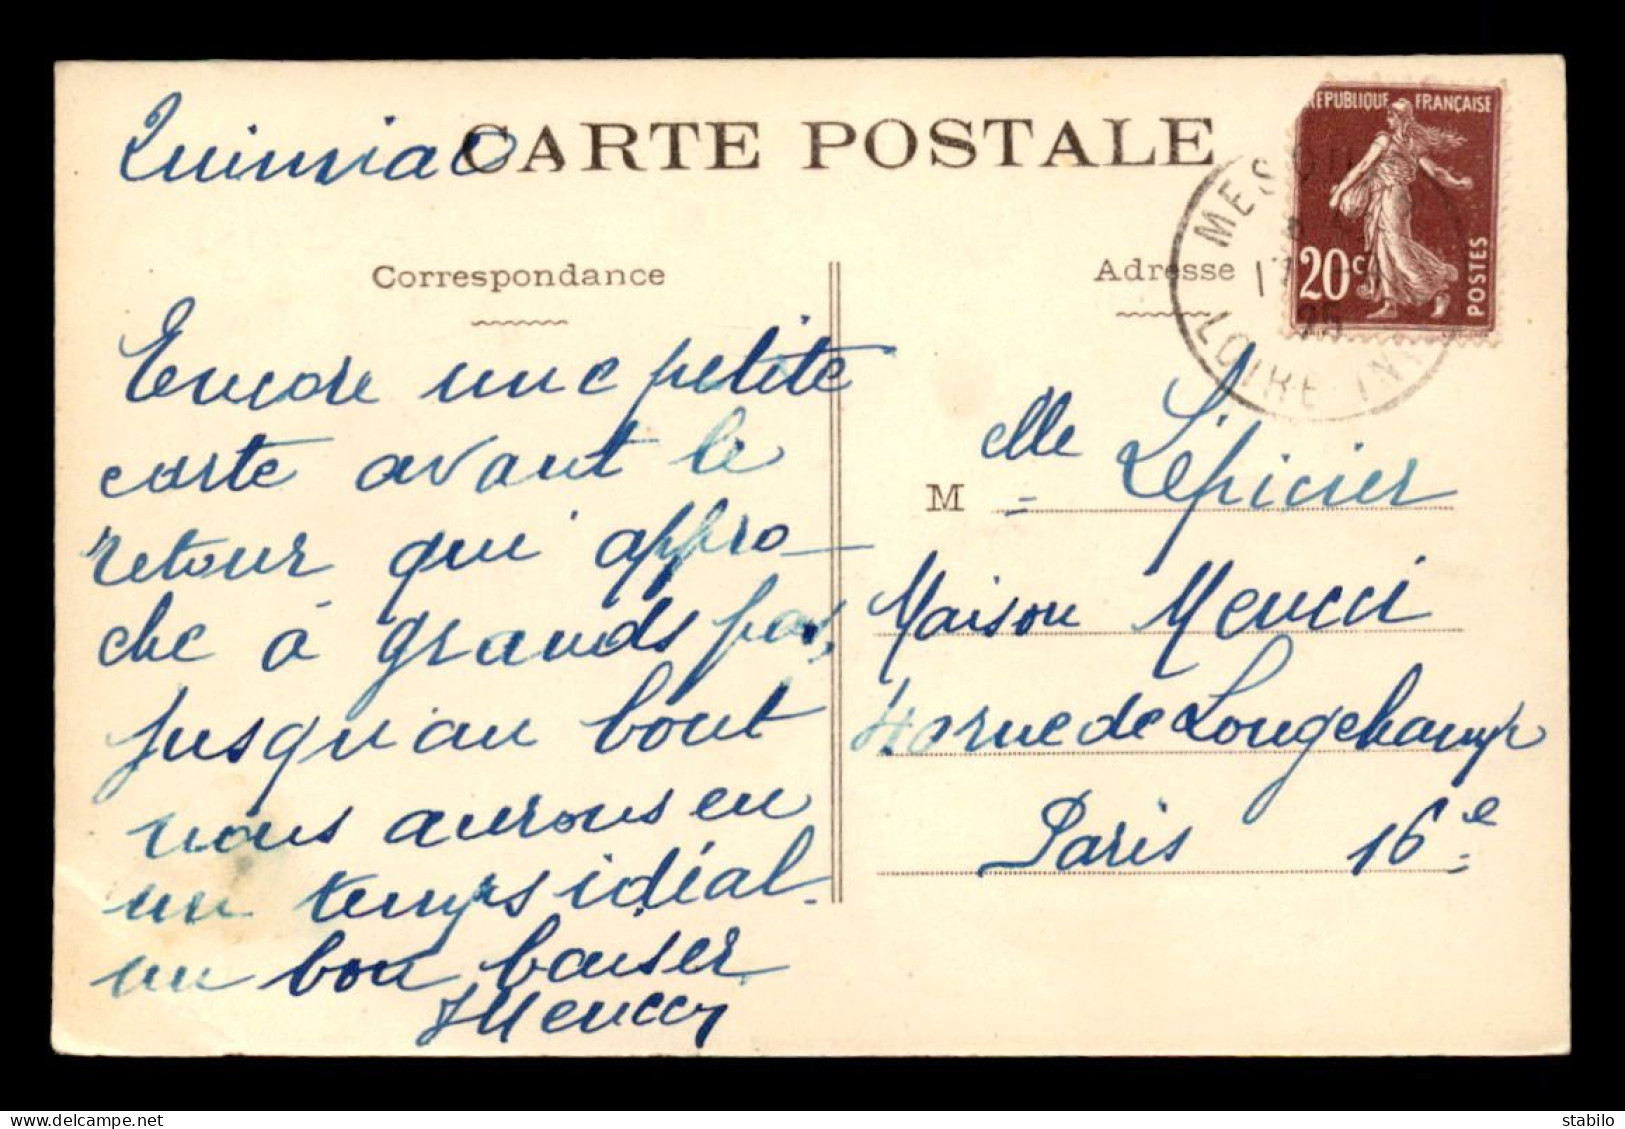 Quimiac
CARTE POSTALE
RÉPUBLIQUE FRANÇAISE
20c
POSTES
LOIRE INF
Correspondance
Adresse
Encore une petite
carte avant le
retour qui appro–
che à grands pas,
jusqu'au bout
nous aurons eu
un temps idéal.
un bon baiser
JMeuccy
M elle Lépicier
Maison Meucci
rue de Longchamp
Paris 16e
delcampe.net
stabilo